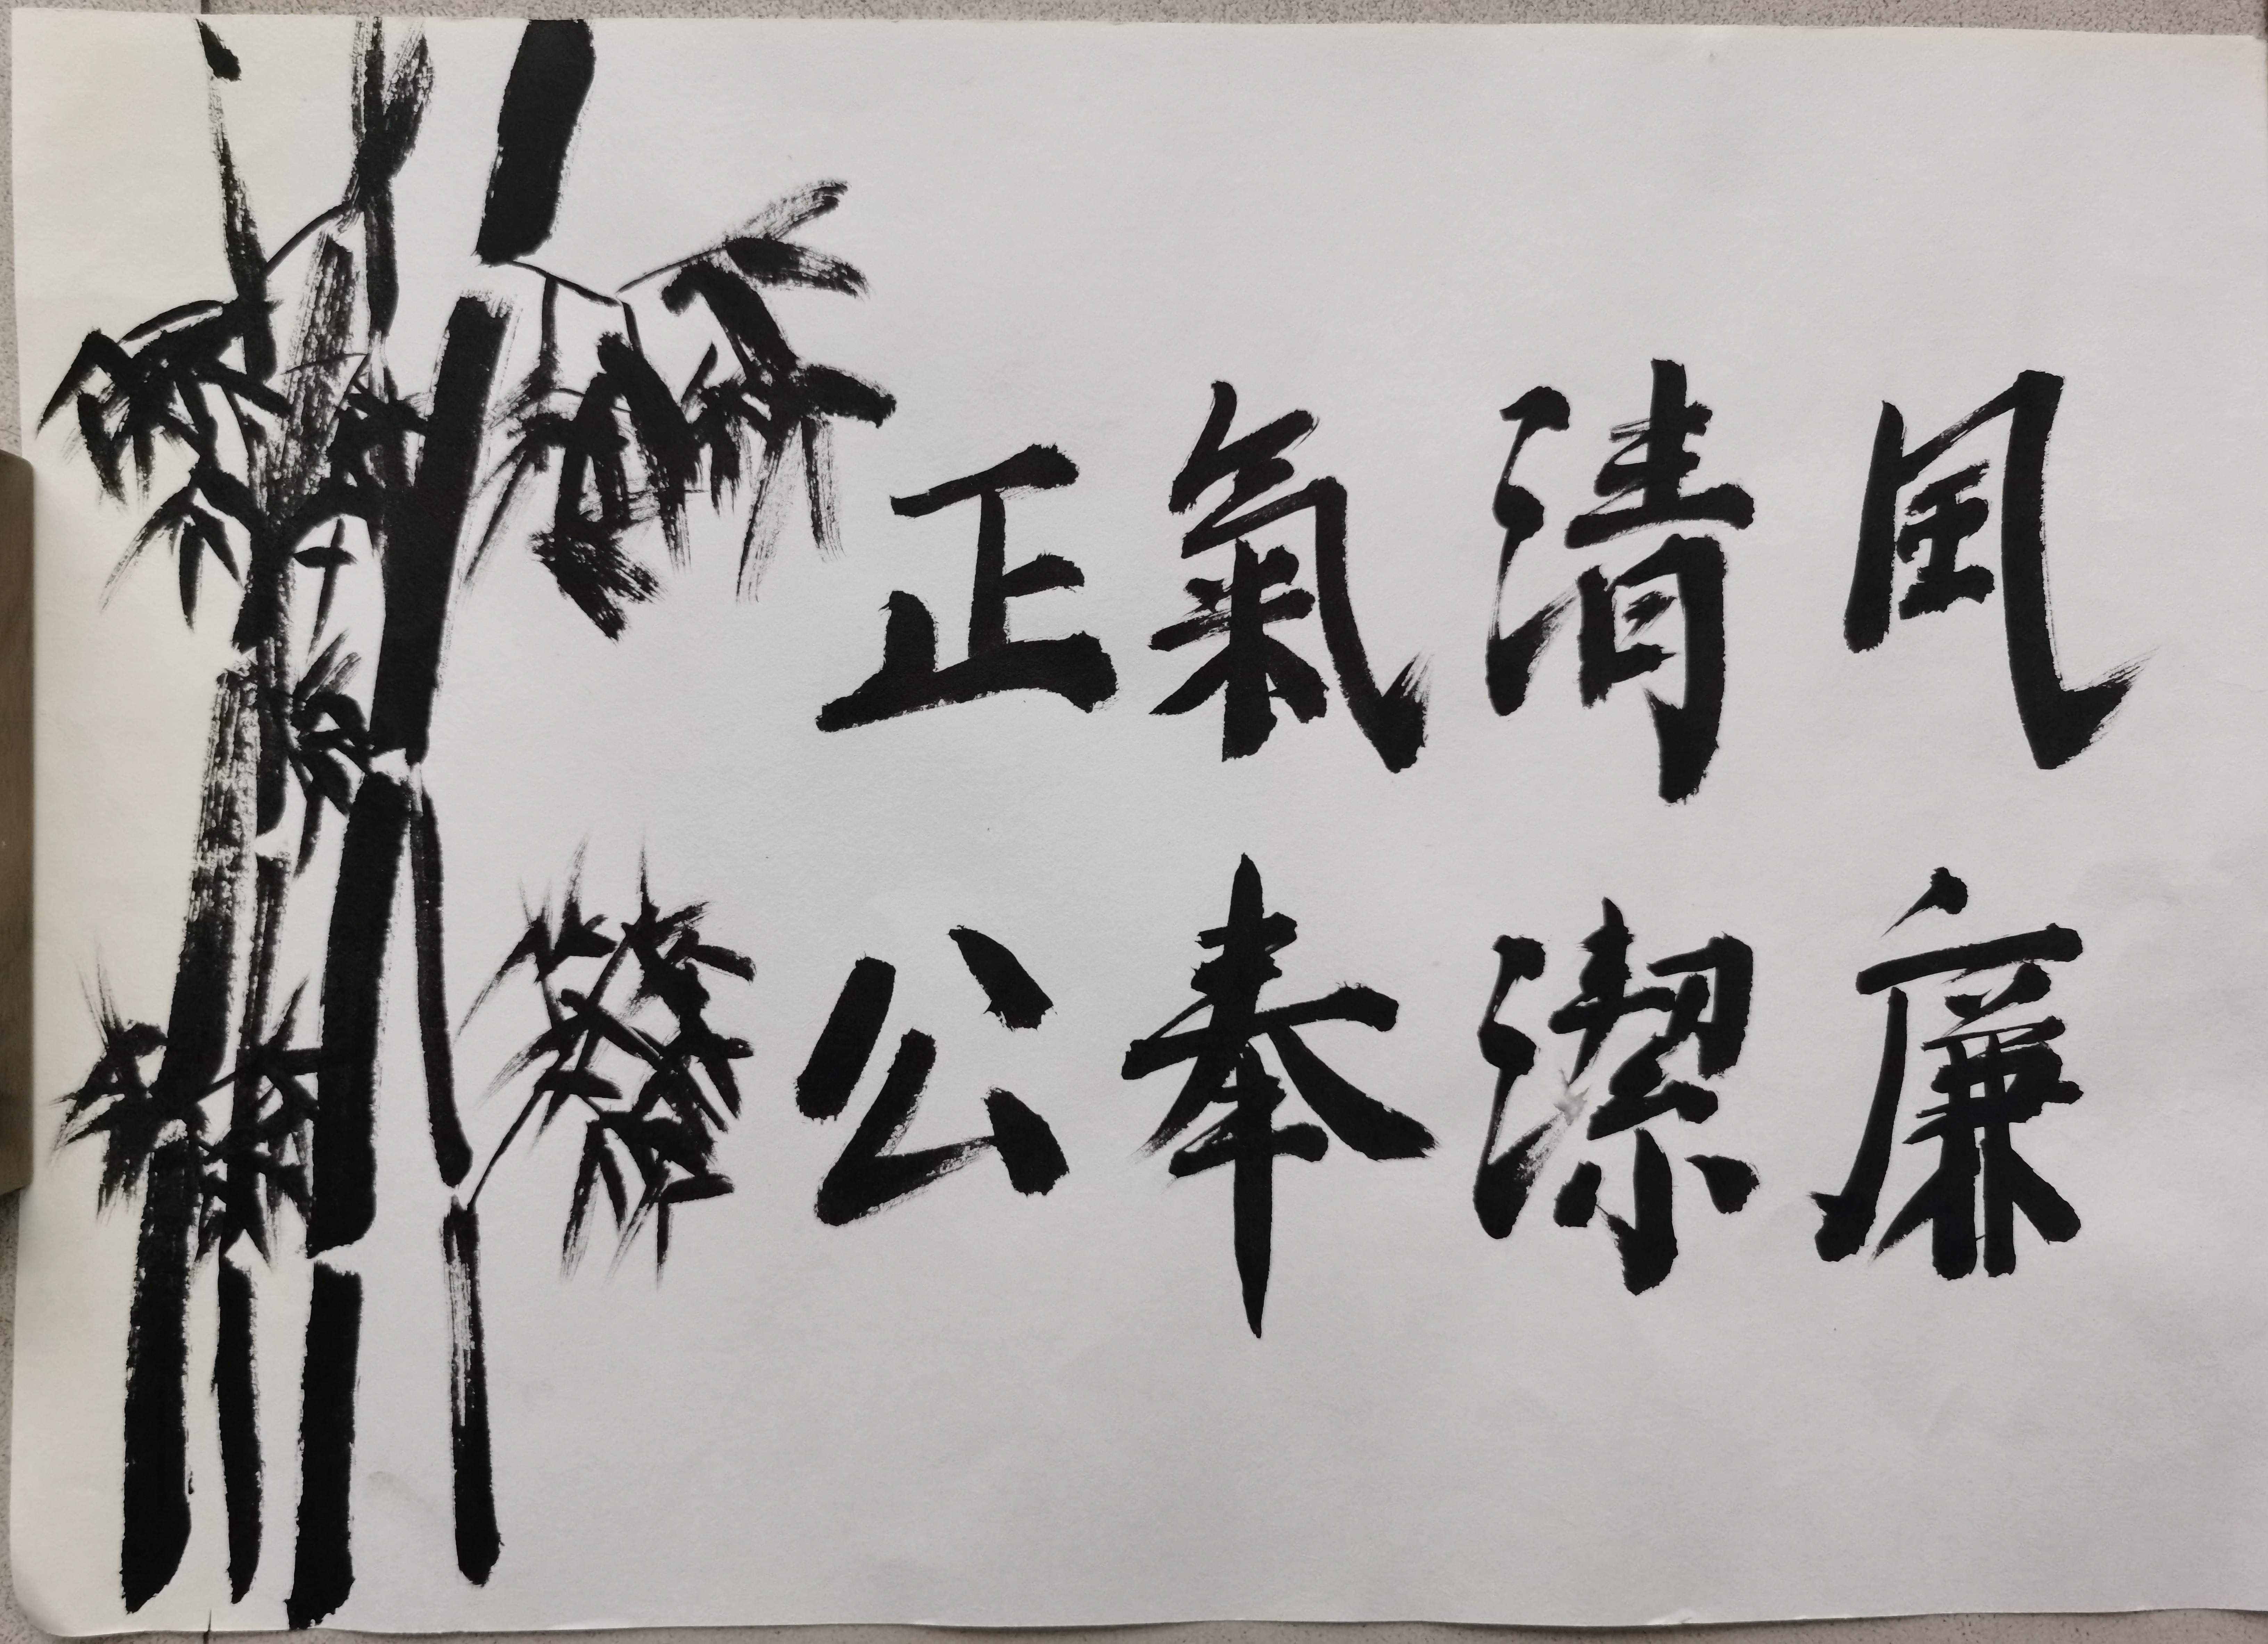 風清氣正
廉潔奉公